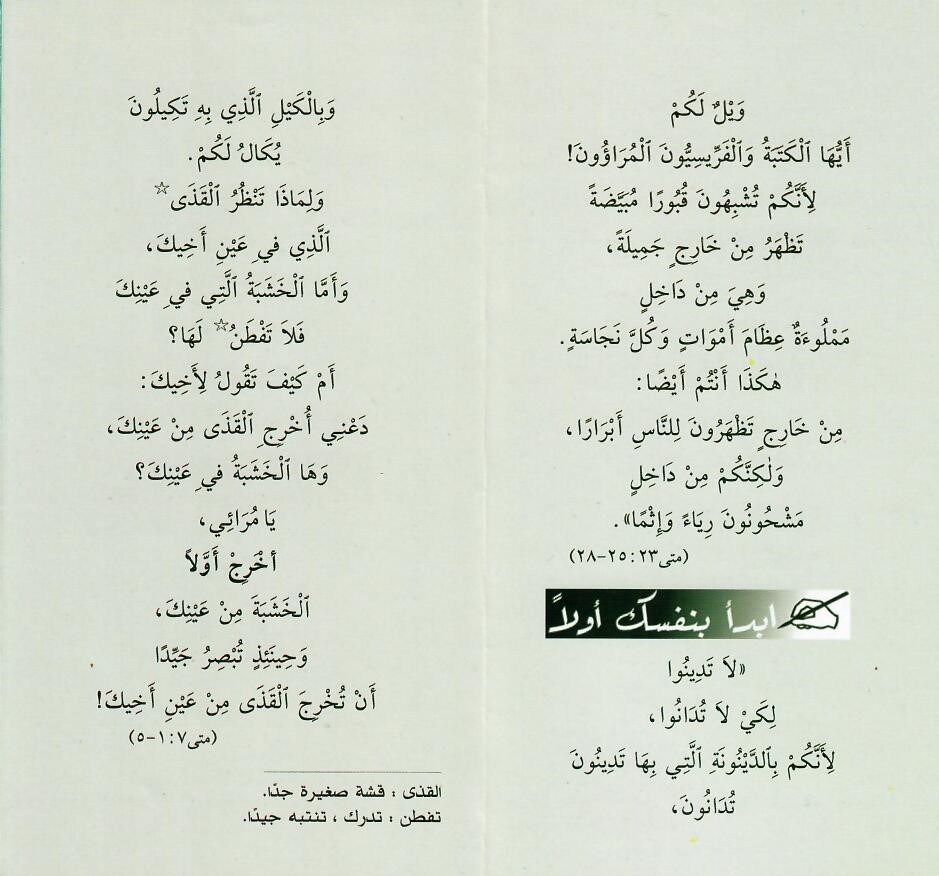 وَيْلٌ لَكُمْ
أَيُّهَا ٱلْكَتَبَةُ وَٱلْفَرِّيسِيُّونَ ٱلْمُرَاؤُونَ!
لِأَنَّكُمْ تُشْبِهُونَ قُبُورًا مُبَيَّضَةً
تَظْهَرُ مِنْ خَارِجٍ جَمِيلَةً،
وَهِيَ مِنْ دَاخِلٍ
مَمْلُوءَةٌ عِظَامَ أَمْوَاتٍ وَكُلَّ نَجَاسَةٍ.
هٰكَذَا أَنْتُمْ أَيْضًا:
مِنْ خَارِجٍ تَظْهَرُونَ لِلنَّاسِ أَبْرَارًا،
وَلٰكِنَّكُمْ مِنْ دَاخِلٍ
مَشْحُونُونَ رِيَاءً وَإِثْمًا».
(متى٢٣:٢٥-٢٨)
ابدأ بنفسك أولاً
«لاَ تَدِينُوا
لِكَيْ لاَ تُدَانُوا،
لِأَنَّكُمْ بِٱلدَّيْنُونَةِ ٱلَّتِي بِهَا تَدِينُونَ
تُدَانُونَ،
وَبِٱلْكَيْلِ ٱلَّذِي بِهِ تَكِيلُونَ
يُكَالُ لَكُمْ.
وَلِمَاذَا تَنْظُرُ ٱلْقَذَى☆
ٱلَّذِي فِي عَيْنِ أَخِيكَ،
وَأَمَّا ٱلْخَشَبَةُ ٱلَّتِي فِي عَيْنِكَ
فَلاَ تَفْطَنُ☆ لَهَا؟
أَمْ كَيْفَ تَقُولُ لِأَخِيكَ:
دَعْنِي أُخْرِجِ ٱلْقَذَى مِنْ عَيْنِكَ،
وَهَا ٱلْخَشَبَةُ فِي عَيْنِكَ؟
يَا مُرَائِي،
أخْرِجْ أَوَّلاً
ٱلْخَشَبَةَ مِنْ عَيْنِكَ،
وَحِينَئِذٍ تُبْصِرُ جَيِّدًا
أَنْ تُخْرِجَ ٱلْقَذَى مِنْ عَيْنِ أَخِيكَ!
(متى٧:١-٥)
القذى : قشة صغيرة جدًا.
تفطن : تدرك ، تنتبه جيدًا.